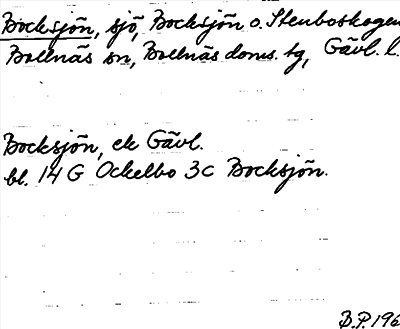 Bocksjön, sjö, Bocksjön o. Stenboskogen
Bollnäs sn, Bollnäs doms. tg, Gävl. l.
Bocksjön, ek Gävl.
bl. 14 G Ockelbo 3c Bocksjön.
B.P. 196